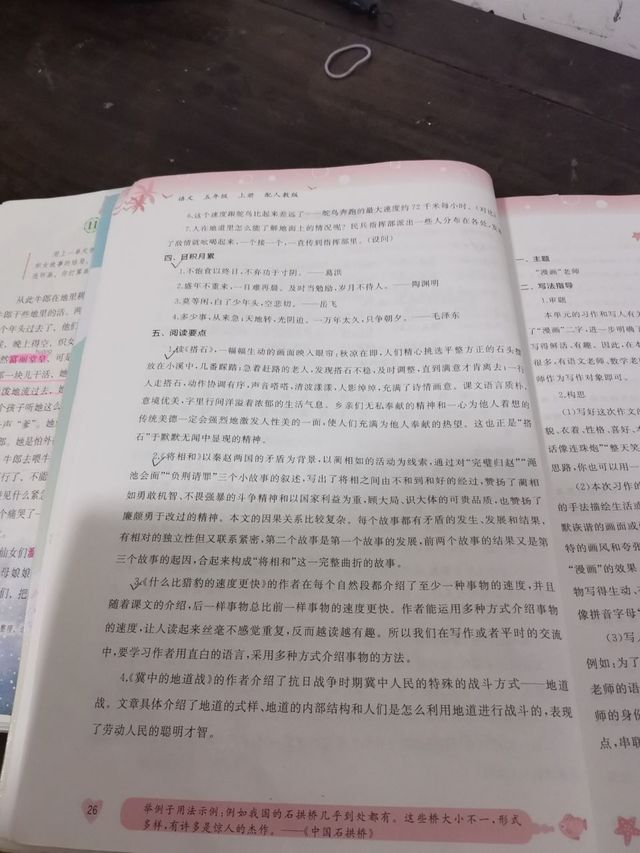 语文 五年级 上册 配人教版
6.这个速度跟鸵鸟比起来差远了——鸵鸟奔跑的最大速度约72千米每小时。(对比)
7.人在地道里怎么能了解地面上的情况呢？民兵指挥部派出一些人分布在各处,
了敌情就吆喝起来,一个接一个,一直传到指挥部里。(设问)
四、日积月累
1.不饱食以终日,不弃功于寸阴。——葛洪
2.盛年不重来,一日难再晨。及时当勉励,岁月不待人。——陶渊明
3.莫等闲,白了少年头,空悲切。——岳飞
4.多少事,从来急;天地转,光阴迫。一万年太久,只争朝夕。——毛泽东
五、阅读要点
1.读《搭石》,一幅幅生动的画面映入眼帘:秋凉在即,人们精心挑选平整方正的石头摆
放在小溪中,几番踩踏;急着赶路的老人,发现搭石不稳,及时调整,直到满意才肯离去;一行
人走搭石,动作协调有序,声音嗒嗒,清波漾漾,人影绰绰,充满了诗情画意。课文语言质朴,
意境优美,字里行间洋溢着浓郁的生活气息。乡亲们无私奉献的精神和一心为他人着想的
传统美德一定会强烈地激发人性美的一面,使人们充满为他人奉献的热望。这也正是“搭
石”于默默无闻中显现的精神。
2.《将相和》以秦赵两国的矛盾为背景,以蔺相如的活动为线索,通过对“完璧归赵”“渑
池会面”“负荆请罪”三个小故事的叙述,写出了将相之间由不和到和好的经过,赞扬了蔺相
如勇敢机智、不畏强暴的斗争精神和以国家利益为重,顾大局、识大体的可贵品质,也赞扬了
廉颇勇于改过的精神。本文的因果关系比较复杂。每个故事都有矛盾的发生、发展和结果,
有相对的独立性但又联系紧密,第二个故事是第一个故事的发展,前两个故事的结果又是第
三个故事的起因,合起来构成“将相和”这一完整曲折的故事。
3.《什么比猎豹的速度更快》的作者在每个自然段都介绍了至少一种事物的速度,并且
随着课文的介绍,后一样事物总比前一样事物的速度更快。作者能运用多种方式介绍事物
的速度,让人读起来丝毫不感觉重复,反而越读越有趣。所以我们在写作或者平时的交流
中,要学习作者用直白的语言,采用多种方式介绍事物的方法。
4.《冀中的地道战》的作者介绍了抗日战争时期冀中人民的特殊的战斗方式——地道
战。文章具体介绍了地道的式样、地道的内部结构和人们是怎么利用地道进行战斗的,表现
了劳动人民的聪明才智。
26
举例子用法示例:例如我国的石拱桥几乎到处都有。这些桥大小不一,形式
多样,有许多是惊人的杰作。——《中国石拱桥》
11
从此牛郎在地里耕
郎干些地里的活。两
个年头过去了,他们
晚上得空,织女
富丽堂皇
一块儿干活,她
泼地流过去,她
个孩子听她这么
仙女们
母娘娘
一、主题
“漫画”老师
二、写法指导
1.审题
本单元的习作和写人有关
了“漫画”二字,进一步明确了
写得鲜活、有趣。因此,在本
很多,有语文老师、数学老师
师作为写作对象即可。
2.构思
(1)写好这次作文的
貌、衣着、性格、喜好、本
话像连珠炮”“整天笑
思路,你也可以用一
(2)本次习作的
的手法描绘生活或
默诙谐的画面或
特的画风和夸张
“漫画”的效果
物写得生动、
像拼音字母“
(3)写人
例如:为了
老师的语
师的身份
点,串联